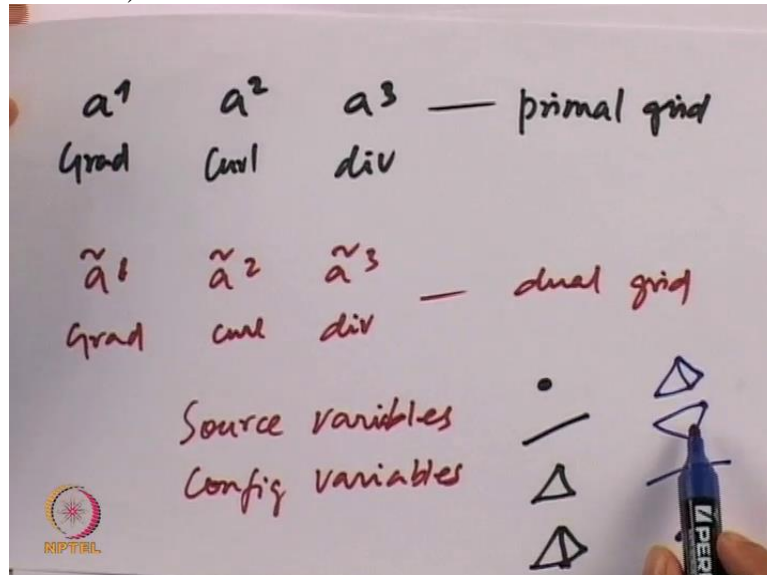 a¹ a² a³ — primal grid
Grad Curl div
ã¹ ã² ã³ — dual grid
Grad curl div
Source variables
Config variables
NPTEL
PER